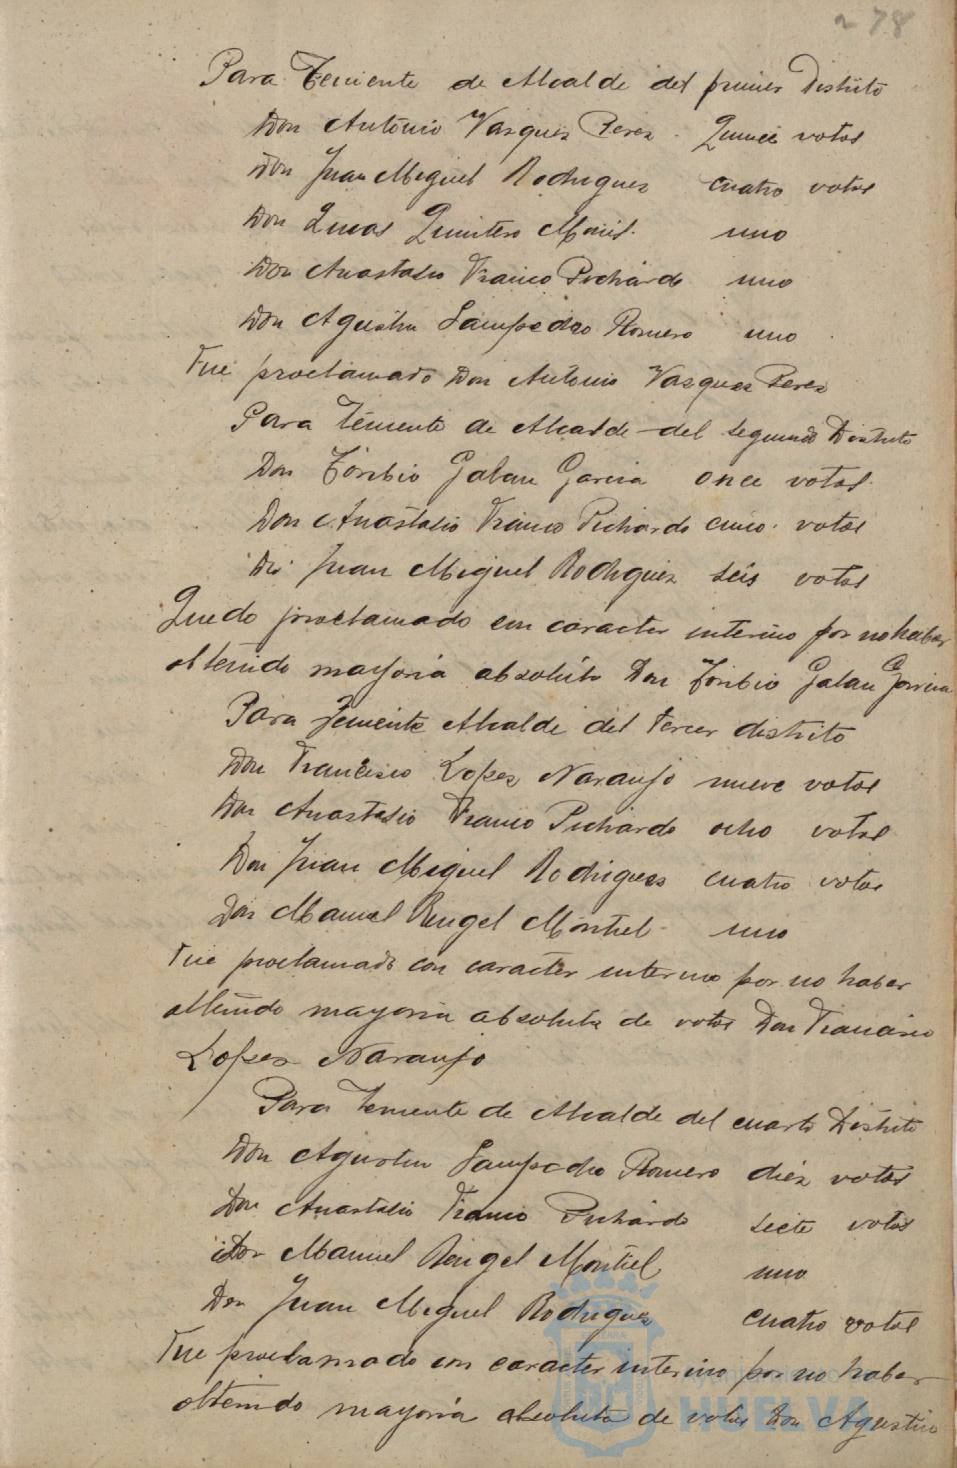 278
Para Teniente de Alcalde del primer Distrito
Don Antonio Vasquez Perez. Quince votos
Don Juan Miguel Rodriguez cuatro votos
Don Lucas Quintero uno
Don Anastasio Franco Pichardo uno
Don Agustin Sampedro Romero uno
Fue proclamado Don Antonio Vasquez Perez
Para Teniente de Alcalde del segundo Distrito
Don Toribio Galan Garcia once votos
Don Anastasio Franco Pichardo cinco votos
Juan Miguel Rodriguez seis votos
Quedo proclamado con caracter interino por no haber
obtenido mayoria absoluta Don Toribio Galan Garcia
Para Teniente Alcalde del tercer distrito
Don Francisco Lopez Naranjo nueve votos
Don Anastasio Franco Pichardo ocho votos
Don Juan Miguel Rodriguez cuatro votos
Don Manuel Rengel Montiel uno
Fue proclamado con caracter interino por no haber
obtenido mayoria absoluta de votos Don Francisco
Lopez Naranjo
Para Teniente de Alcalde del cuarto Distrito
Don Agustin Sampedro Romero diez votos
Don Anastasio Franco Pichardo siete votos
Don Manuel Rengel Montiel uno
Don Juan Miguel Rodriguez cuatro votos
Fue proclamado con caracter interino por no haber
obtenido mayoria absoluta de votos Don Agustin
HUELVA